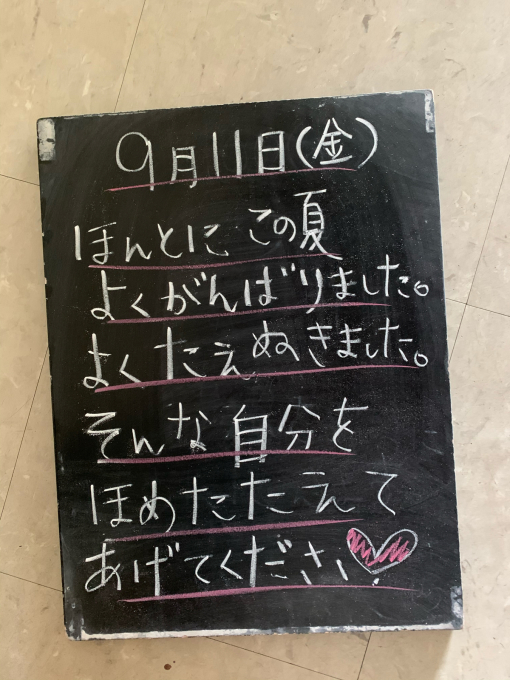 9月11日(金)
ほんとに この夏
よくがんばりました。
よくたえぬきました。
そんな自分を
ほめたたえて
あげてください